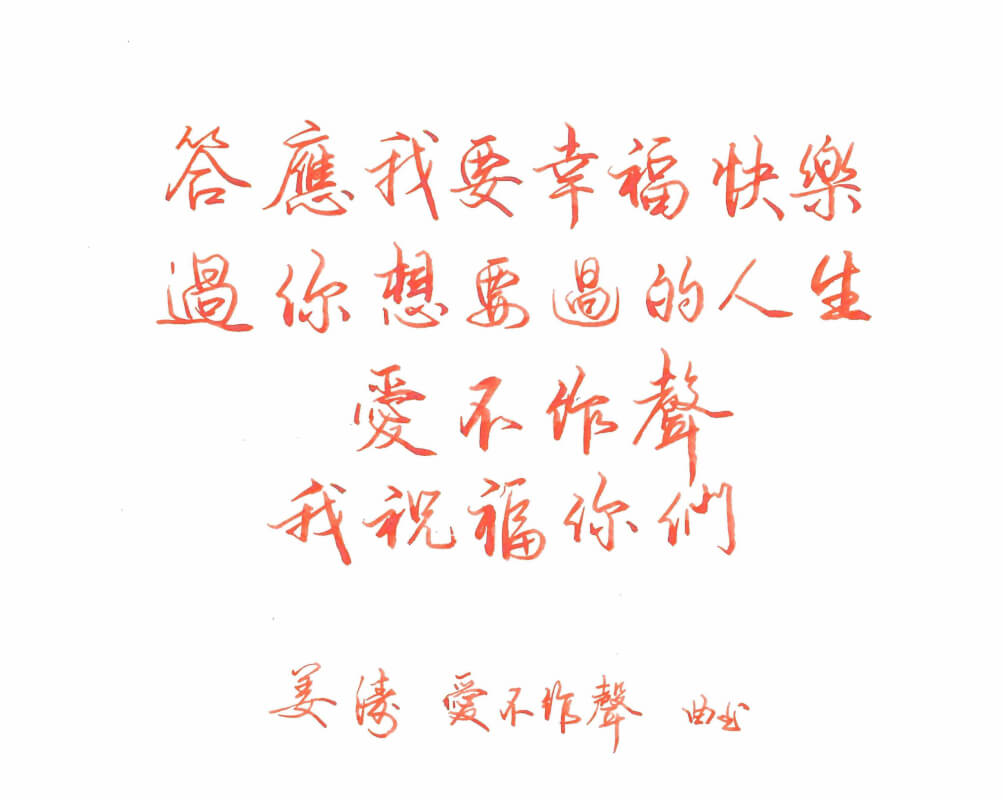 答應我要幸福快樂
過你想要過的人生
愛不作聲
我祝福你們
姜濤 愛不作聲 曲